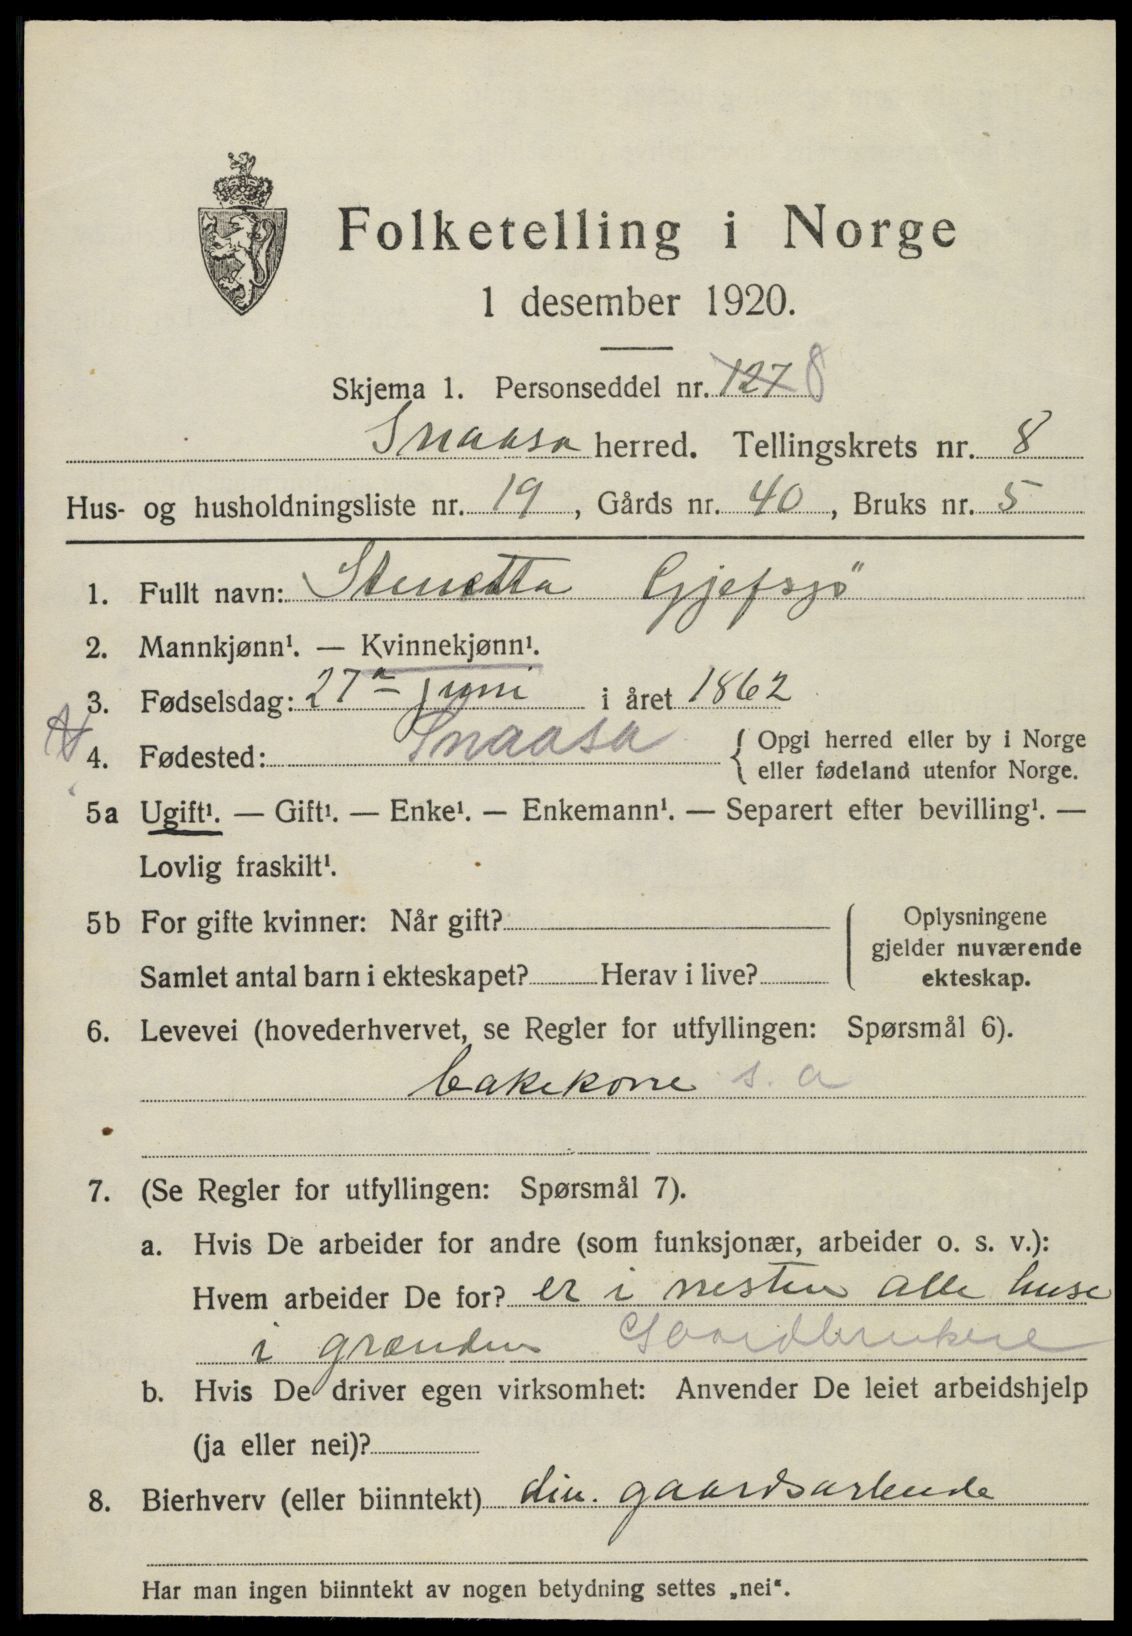 Folketelling i Norge
1 desember 1920.
Skjema 1. Personseddel nr. 127 8
Snaasa herred. Tellingskrets nr. 8
Hus- og husholdningsliste nr. 19, Gårds nr. 40, Bruks nr. 5
1. Fullt navn: Gjefsjö
2. Mannkjønn¹. — Kvinnekjønn¹.
3. Fødselsdag: 27 juni i året 1862
4. Fødested: Snaasa { Opgi herred eller by i Norge
eller fødeland utenfor Norge.
5a Ugift¹. — Gift¹. — Enke¹. — Enkemann¹. — Separert efter bevilling¹. —
Lovlig fraskilt¹.
5b For gifte kvinner: Når gift?
Samlet antal barn i ekteskapet? Herav i live?
Oplysningene
gjelder nuværende
ekteskap.
6. Levevei (hovederhvervet, se Regler for utfyllingen: Spørsmål 6).
bakekone s. a
7. (Se Regler for utfyllingen: Spørsmål 7).
a. Hvis De arbeider for andre (som funksjonær, arbeider o. s. v.):
Hvem arbeider De for? er i nesten alle huse
i grænden Gaardbrukere
b. Hvis De driver egen virksomhet: Anvender De leiet arbeidshjelp
(ja eller nei)?
8. Bierhverv (eller biinntekt) div. gaardsarbeide
Har man ingen biinntekt av nogen betydning settes „nei“.